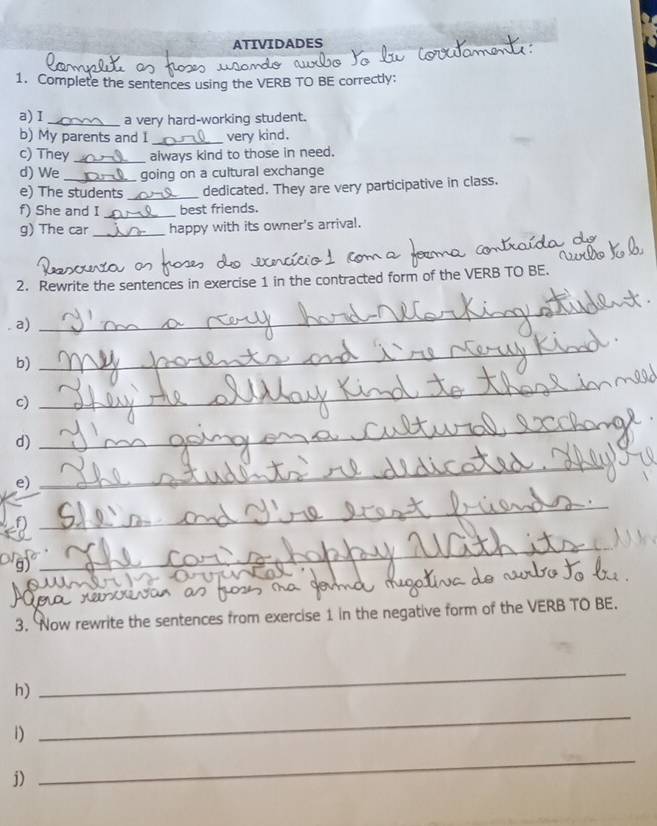 ATIVIDADES
Complete as frases usando verbo to be corretamente:
1. Complete the sentences using the VERB TO BE correctly:
a) I am a very hard-working student.
b) My parents and I are very kind.
c) They are always kind to those in need.
d) We are going on a cultural exchange
e) The students are dedicated. They are very participative in class.
f) She and I are best friends.
g) The car is happy with its owner's arrival.
Reescreva as frases do exercício 1 com a forma contraída do verbo to be
2. Rewrite the sentences in exercise 1 in the contracted form of the VERB TO BE.
a) I'm a very hard-working student.
b) My parents and i're very kind.
c) They're allway kind to those in need
d) I'm going on a cultural exchange.
e) The students're dedicated. They're
f) She's and I're best friends.
g) The car's happy with its
owner's
Agora reescrevam as frases na forma negativa do verbo to be.
3. Now rewrite the sentences from exercise 1 in the negative form of the VERB TO BE.
h)
i)
j)